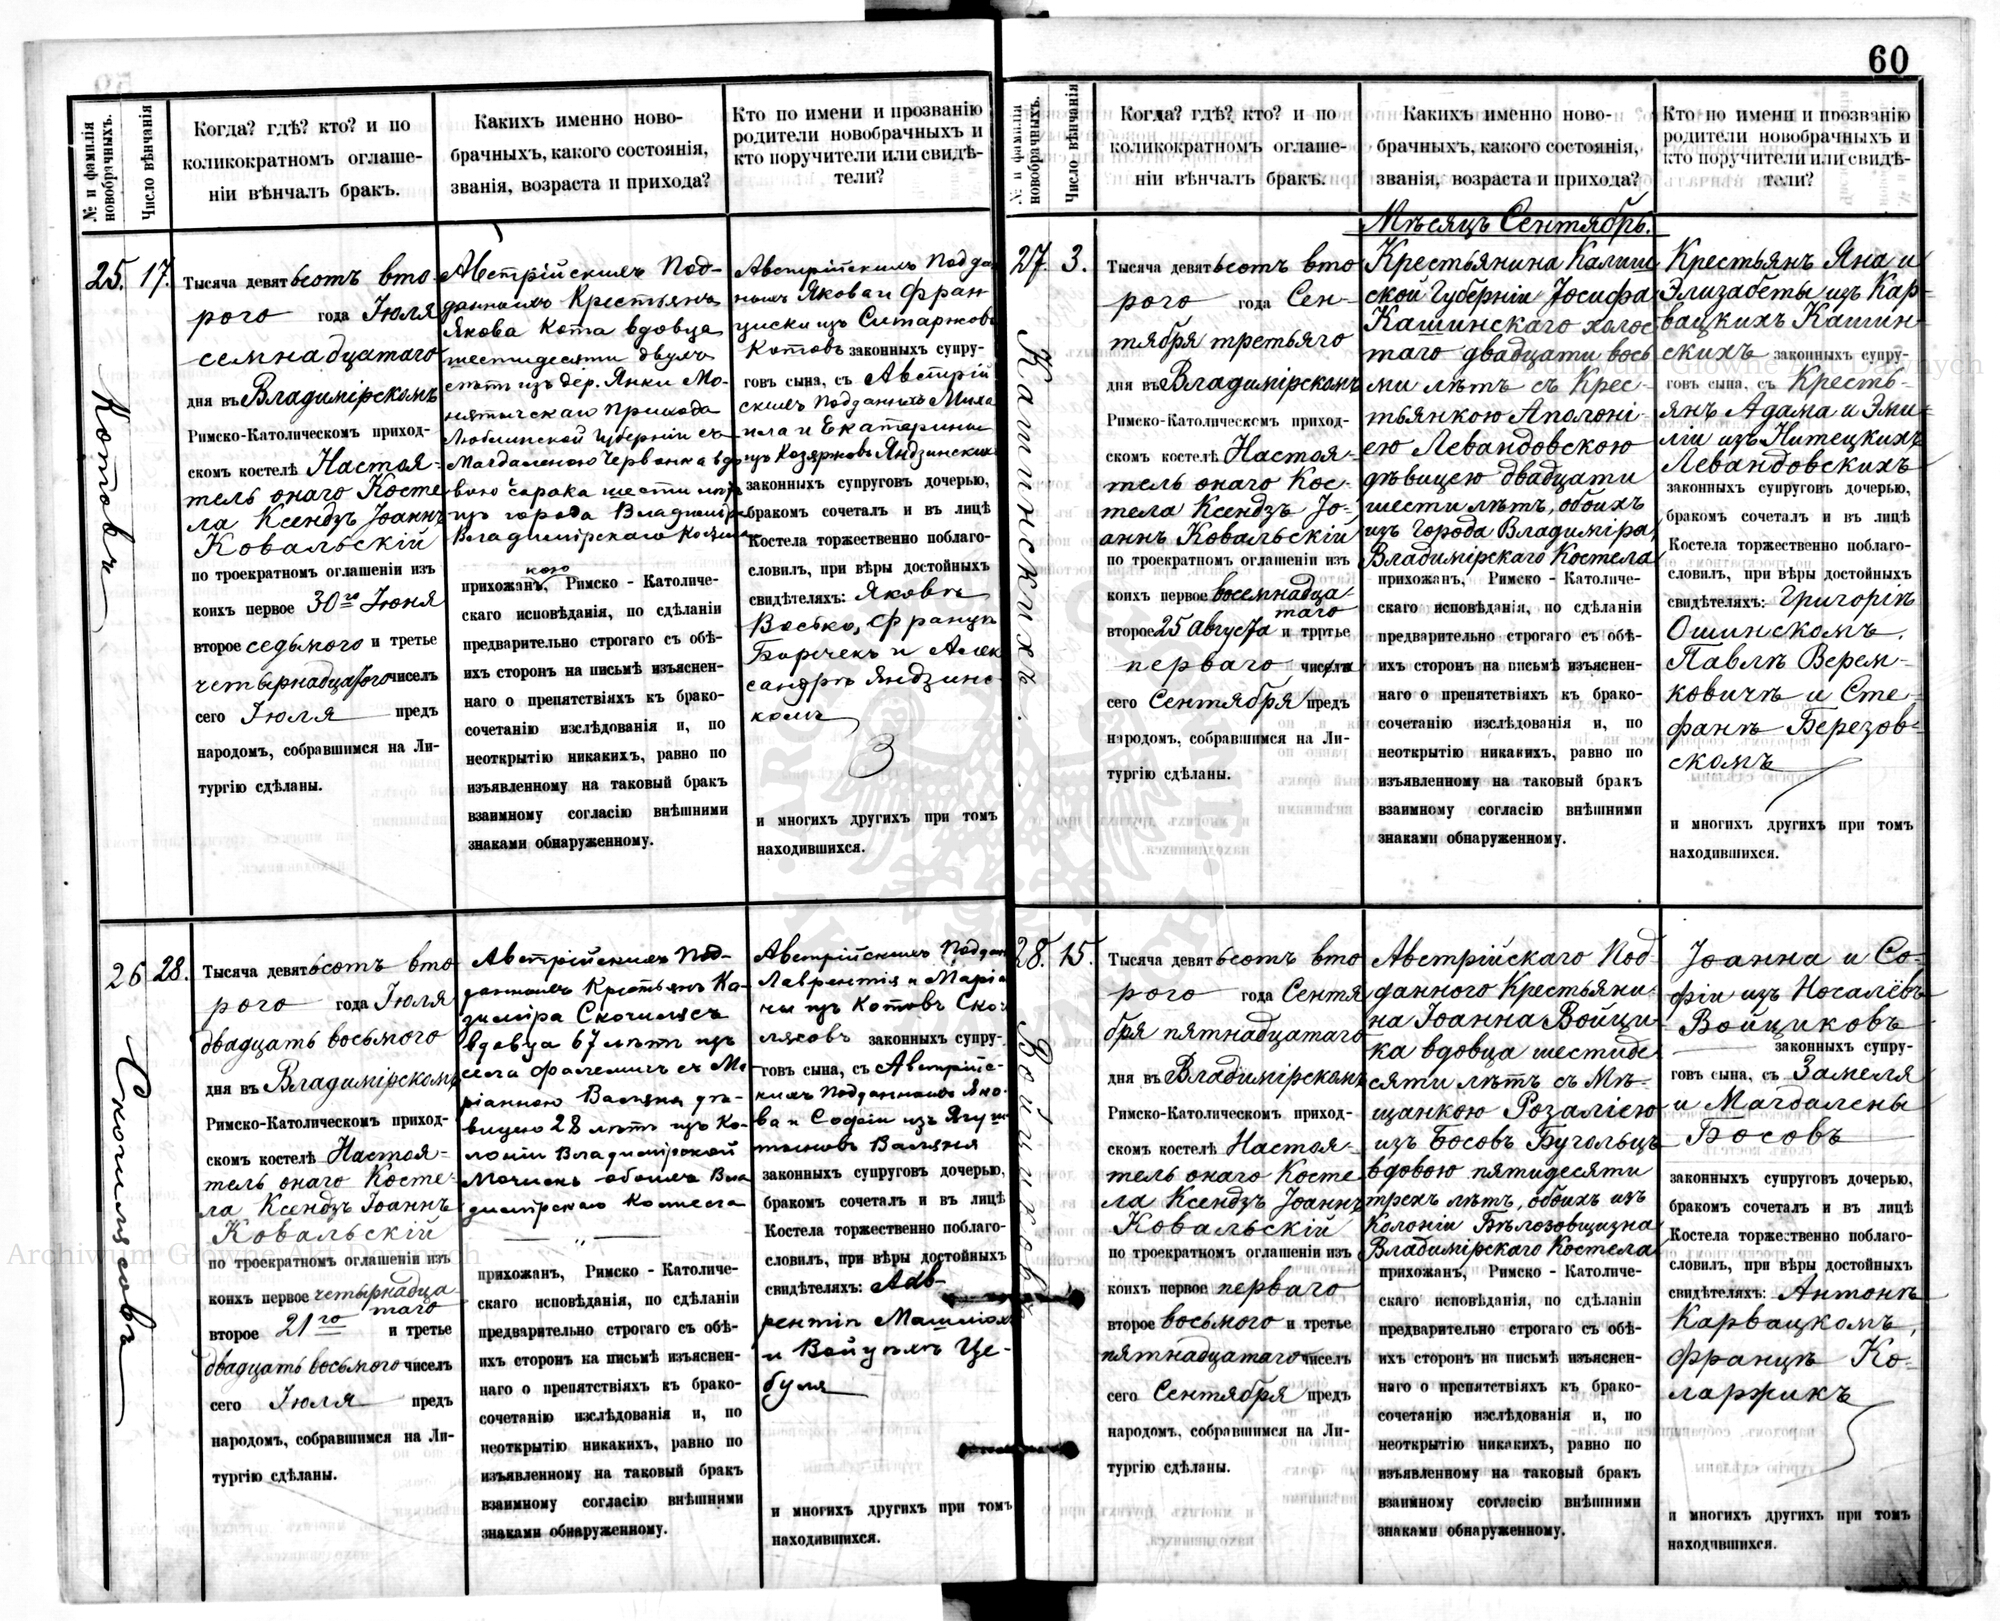 60
№ и фамилія новобрачныхъ.
Число вѣнчанія
Когда? гдѣ? кто? и по
коликократномъ оглаше-
ніи вѣнчалъ бракъ.
Какихъ именно ново-
брачныхъ, какого состоянія,
званія, возраста и прихода?
Кто по имени и прозванію
родители новобрачныхъ и
кто поручители или свидѣ-
тели?
25.
17.
Котовъ
Тысяча девятьсотъ вто-
рого года Іюля
семнадцатаго
дня въ Владимірскомъ
Римско-Католическомъ приход-
скомъ костелѣ Настоя-
тель онаго Косте
ла Ксендзъ Іоаннъ
Ковальскій
по троекратномъ оглашеніи изъ
коихъ первое 30го Іюня
второе седьмого и третье
четырнадцатого чиселъ
сего Іюля предъ
народомъ, собравшимся на Ли-
тургію сдѣланы.
Австрійскихъ Под-
данныхъ Крестьянъ
Якова Кота вдовца
шестидесяти двухъ
лѣтъ изъ дер. Янки Мо-
нятычскаго прихода
Люблинской Губерніи съ
Магдаленою Червонка вдо
вою сорока шести лѣтъ
изъ города Владиміра
Владимірскаго Костела
кого
прихожанъ, Римско - Католиче-
скаго исповѣданія, по сдѣланіи
предварительно строгаго съ обѣ-
ихъ сторонъ на письмѣ изъяснен-
наго о препятствіяхъ къ брако-
сочетанію изслѣдованія и, по
неоткрытію никакихъ, равно по
изъявленному на таковый бракъ
взаимному согласію внѣшними
знаками обнаруженному.
Австрійскихъ Подда
ныхъ Якова и Фран
циски изъ Ситарковъ
Котовъ законныхъ супру-
говъ сына, съ Австрій
скихъ подданныхъ Миха
ила и Екатерины
изъ Козярковъ Яндзинскихъ
законныхъ супруговъ дочерью,
бракомъ сочеталъ и въ лицѣ
Костела торжественно поблаго-
словилъ, при вѣры достойныхъ
свидѣтеляхъ: Яковѣ
Восько, Францѣ
Барчекъ и Алек
сандрѣ Яндзинс-
комъ
и многихъ другихъ при томъ
находившихся.
26
28.
Скочилясовъ
Тысяча девятьсотъ вто
рого года Іюля
двадцать восьмого
дня въ Владимірскомъ
Римско-Католическомъ приход-
скомъ костелѣ Настоя-
тель онаго Косте-
ла Ксендзъ Іоаннъ
Ковальскій
по троекратномъ оглашеніи изъ
коихъ первое четырнадца
таго
второе 21го и третье
двадцать восьмого чиселъ
сего Іюля предъ
народомъ, собравшимся на Ли-
тургію сдѣланы.
Австрійскихъ Под-
данныхъ Крестьянъ Ка-
зиміра Скочилясъ
вдовца 67 лѣтъ изъ
села Фалемичъ съ Ма-
ріанною Валяна дѣ-
вицею 28 лѣтъ изъ Ко-
лоніи Владимірской
обоихъ Вла
димірскаго Костела
прихожанъ, Римско - Католиче-
скаго исповѣданія, по сдѣланіи
предварительно строгаго съ обѣ-
ихъ сторонъ на письмѣ изъяснен-
наго о препятствіяхъ къ брако-
сочетанію изслѣдованія и, по
неоткрытію никакихъ, равно по
изъявленному на таковый бракъ
взаимному согласію внѣшними
знаками обнаруженному.
Австрійскихъ Поддан
Лаврентія и Маріан
ны изъ Котовъ Ско-
лясовъ законныхъ супру-
говъ сына, съ Австрійс-
кихъ Подданныхъ Яко-
ва и Софіи изъ
Валяна
законныхъ супруговъ дочерью,
бракомъ сочеталъ и въ лицѣ
Костела торжественно поблаго-
словилъ, при вѣры достойныхъ
свидѣтеляхъ: Лав-
рентіи
и Войцѣхѣ Це-
буля
и многихъ другихъ при томъ
находившихся.
№ и фамилія новобрачныхъ.
Число вѣнчанія
Когда? гдѣ? кто? и по
коликократномъ оглаше-
ніи вѣнчалъ бракъ.
Какихъ именно ново-
брачныхъ, какого состоянія,
званія, возраста и прихода?
Кто по имени и прозванію
родители новобрачныхъ и
кто поручители или свидѣ-
тели?
Мѣсяцъ Сентябрь.
27.
3.
Кашинскихъ.
Тысяча девятьсотъ вто
рого года Сен-
тября третьяго
дня въ Владимірскомъ
Римско-Католическомъ приход-
скомъ костелѣ Настоя-
тель онаго Кос-
тела Ксендзъ Іо-
аннъ Ковальскій
по троекратномъ оглашеніи изъ
коихъ первое восемнадца-
таго
второе 25 августа и третье
перваго чиселъ
сего Сентября предъ
народомъ, собравшимся на Ли-
тургію сдѣланы.
Крестьянина Калиш
ской Губерніи Іосифа
Кашинскаго холос
таго двадцати вось
ми лѣтъ съ Крес-
тьянкою Аполоні-
ею Левандовскою
дѣвицею двадцати
шести лѣтъ, обоихъ
изъ города Владиміра,
Владимірскаго Костела
прихожанъ, Римско - Католиче-
скаго исповѣданія, по сдѣланіи
предварительно строгаго съ обѣ-
ихъ сторонъ на письмѣ изъяснен-
наго о препятствіяхъ къ брако-
сочетанію изслѣдованія и, по
неоткрытію никакихъ, равно по
изъявленному на таковый бракъ
взаимному согласію внѣшними
знаками обнаруженному.
Крестьянъ Яна и
Элизабеты изъ Кар-
вацкихъ Кашин-
скихъ законныхъ супру-
говъ сына, съ Кресть-
янъ Адама и Эми-
ліи изъ Нитецкихъ
Левандовскихъ
законныхъ супруговъ дочерью,
бракомъ сочеталъ и въ лицѣ
Костела торжественно поблаго-
словилъ, при вѣры достойныхъ
свидѣтеляхъ: Григоріѣ
Ошинскомъ,
Павлѣ Верем-
ковичѣ и Сте-
фанѣ Березов-
скомъ
и многихъ другихъ при томъ
находившихся.
28.
15.
Войциковъ
Тысяча девятьсотъ вто
рого года Сентя
бря пятнадцатаго
дня въ Владимірскомъ
Римско-Католическомъ приход-
скомъ костелѣ Настоя-
тель онаго Косте
ла Ксендзъ Іоаннъ
Ковальскій
по троекратномъ оглашеніи изъ
коихъ первое перваго
второе восьмого и третье
пятнадцатаго чиселъ
сего Сентября предъ
народомъ, собравшимся на Ли-
тургію сдѣланы.
Австрійскаго Под
данного Крестьяни-
на Іоанна Войци-
ка вдовца шестиде
сяти лѣтъ съ Мѣ-
щанкою Розаліею
изъ Босовъ Бугольцъ
вдовою пятидесяти
трехъ лѣтъ, обоихъ изъ
Колоніи Бѣлозовщизна
Владимірскаго Костела
прихожанъ, Римско - Католиче-
скаго исповѣданія, по сдѣланіи
предварительно строгаго съ обѣ-
ихъ сторонъ на письмѣ изъяснен-
наго о препятствіяхъ къ брако-
сочетанію изслѣдованія и, по
неоткрытію никакихъ, равно по
изъявленному на таковый бракъ
взаимному согласію внѣшними
знаками обнаруженному.
Іоанна и Со-
фіи изъ Носалёвъ
Войциковъ
законныхъ супру-
говъ сына, съ Замеля
и Магдалены
Босовъ
законныхъ супруговъ дочерью,
бракомъ сочеталъ и въ лицѣ
Костела торжественно поблаго-
словилъ, при вѣры достойныхъ
свидѣтеляхъ: Антонѣ
Карвацкомъ,
Францѣ Ко-
ларжикѣ
и многихъ другихъ при томъ
находившихся.
Archiwum Główne Akt Dawnych
Archiwum Główne Akt Dawnych